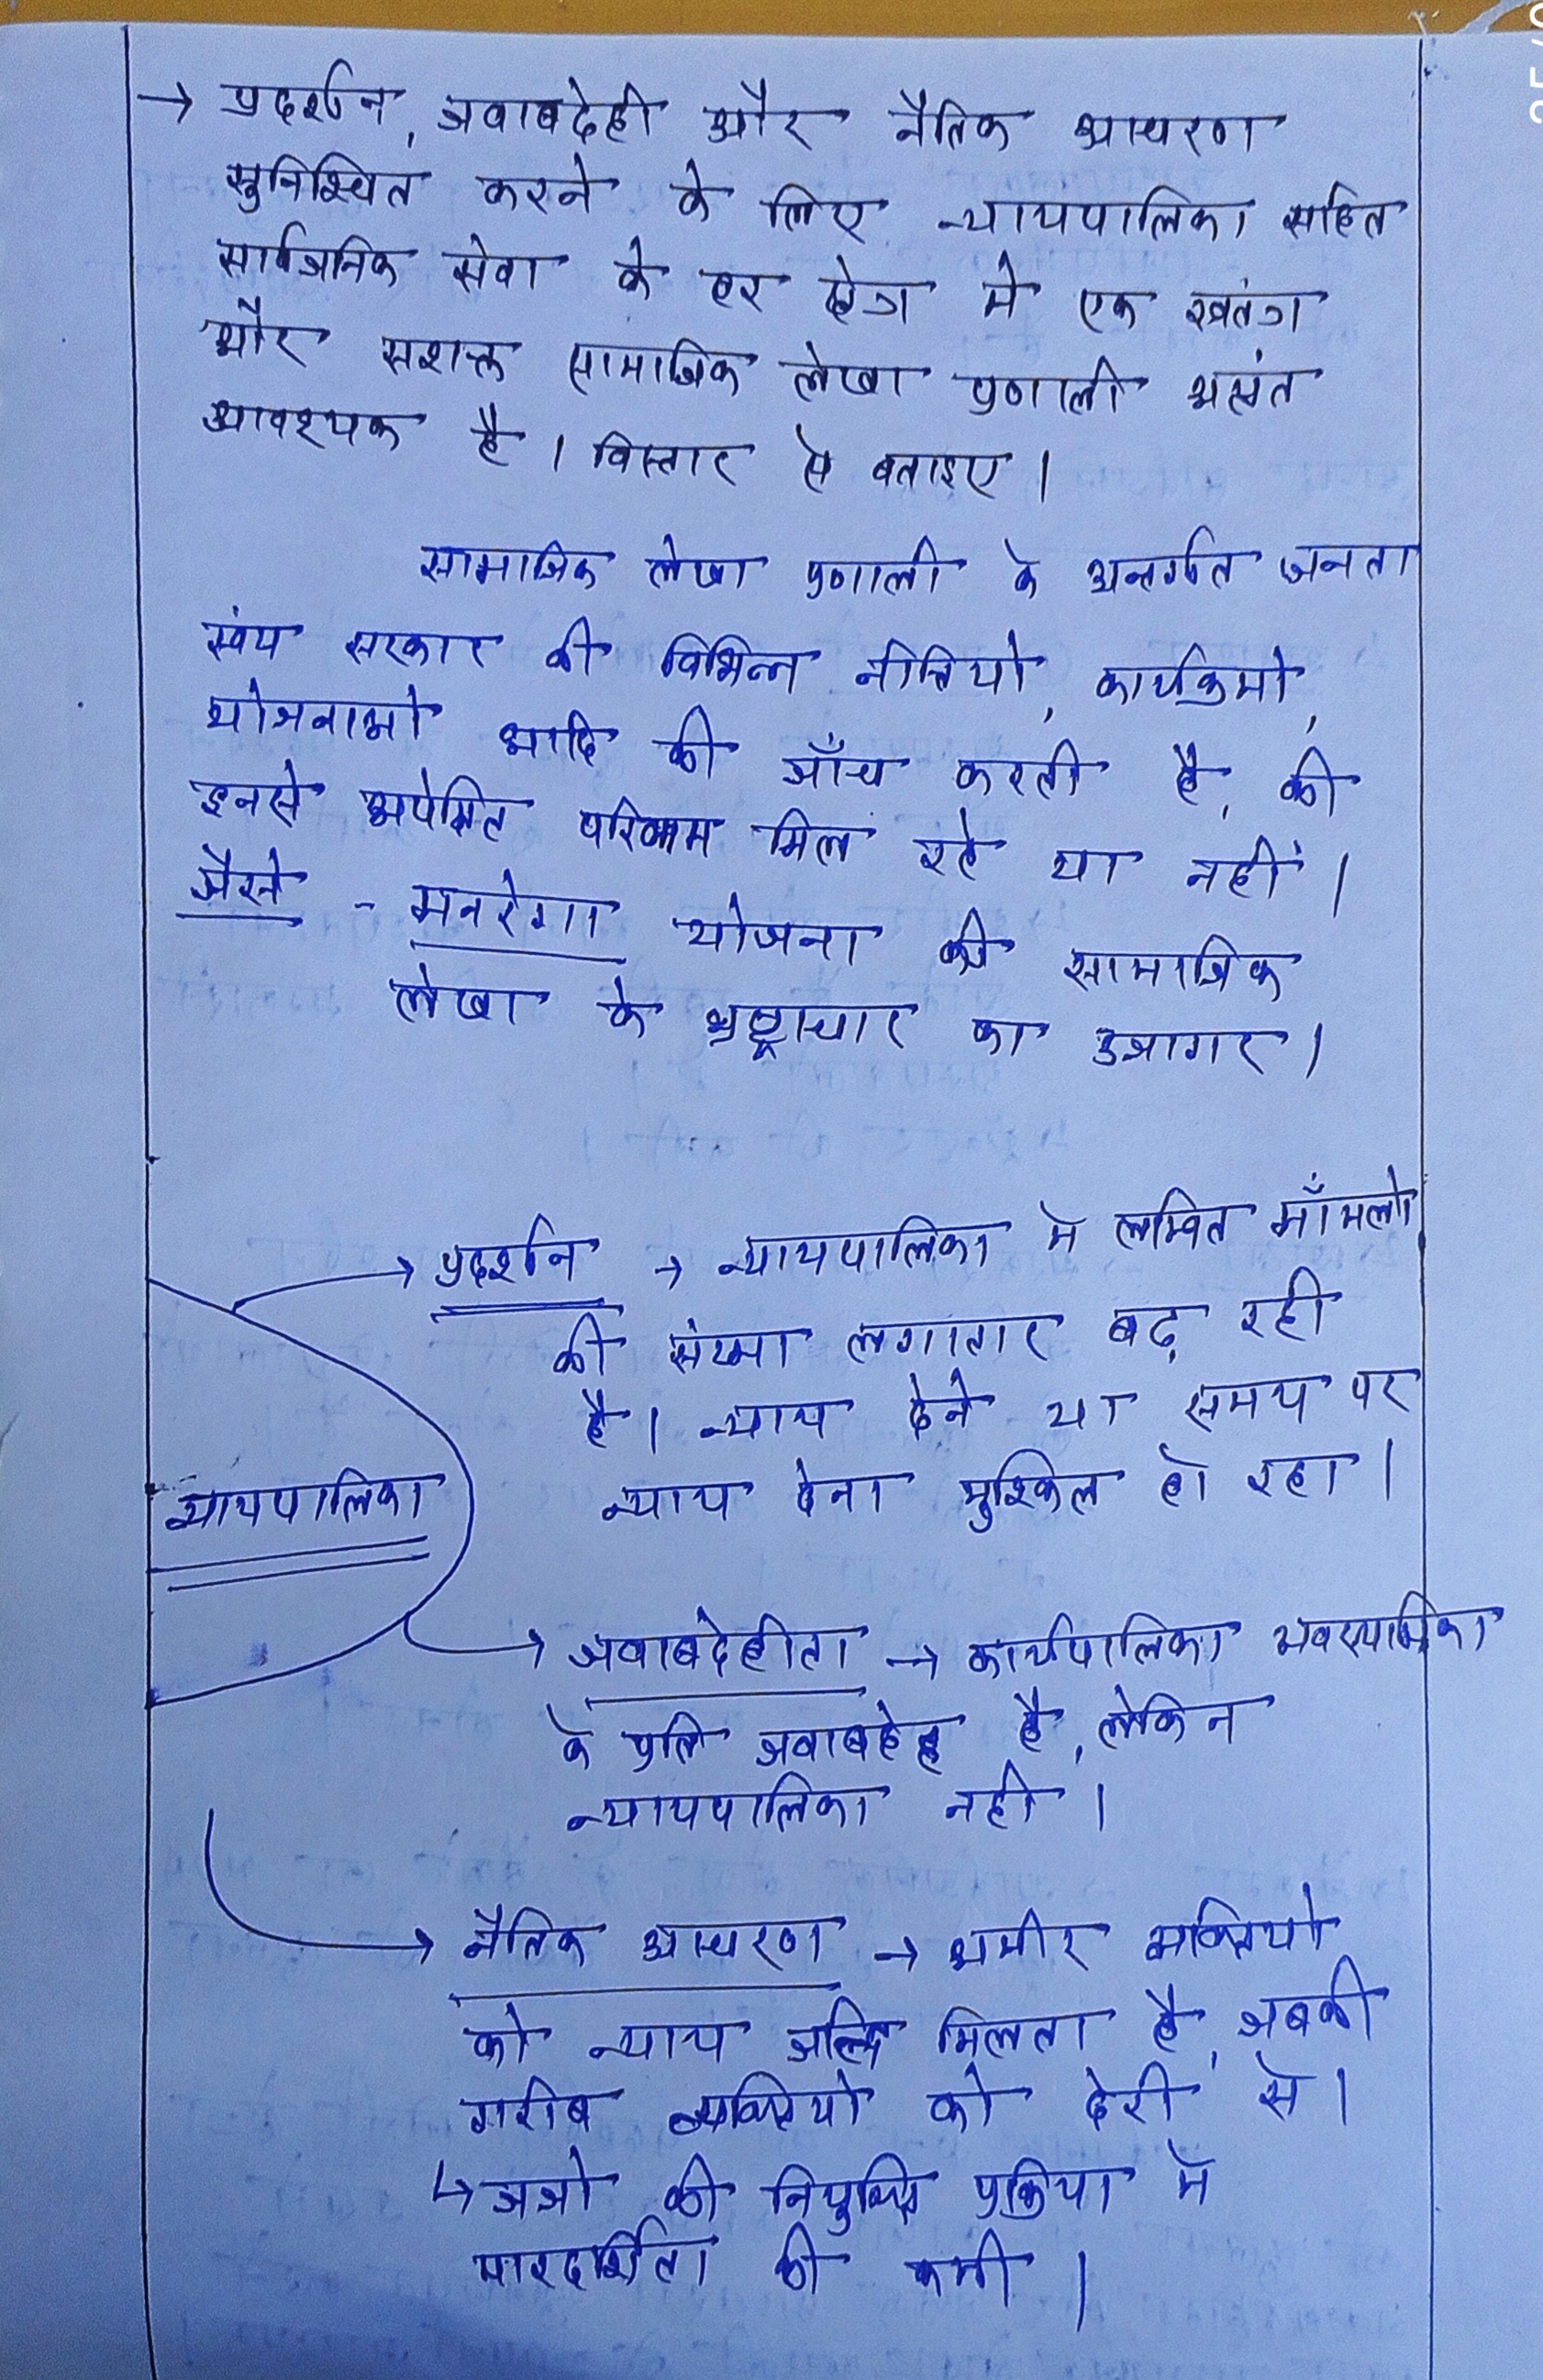 → प्रदर्शन, जवाबदेही और नैतिक आचरण
सुनिश्चित करने के लिए न्यायपालिका सहित
सार्वजनिक सेवा के हर क्षेत्र मे एक स्वतंत्र
और सशक्त सामाजिक लेखा प्रणाली अत्यंत
आवश्यक है। विस्तार से बताइए।
सामाजिक लेखा प्रणाली के अन्तर्गत जनता
स्वंय सरकार की विभिन्न नीतियो, कार्यक्रमो,
योजनाओ आदि की जाँच करती है, की
इनसे अपेक्षित परिणाम मिल रहे या नहीं।
जैसे - मनरेगा योजना की सामाजिक
लेखा के भ्रष्ट्राचार का उजागर।
→ प्रदर्शन → न्यायपालिका मे लम्बित माँमलो
की संख्या लगातार बढ़ रही
है। न्याय देने या समय पर
न्याय देना मुश्किल हो रहा।
न्यायपालिका
→ जवाबदेहीता → कार्यपालिका व्यवस्थापिका
के प्रति जवाबदेह है, लेकिन
न्यायपालिका नही।
→ नैतिक आचरण → अमीर व्यक्तियो
को न्याय जल्दि मिलता है, जबकी
गरीब व्यक्तियो को देरी से।
↳ जजो की नियुक्ति प्रक्रिया मे
पारदर्शिता की कमी।